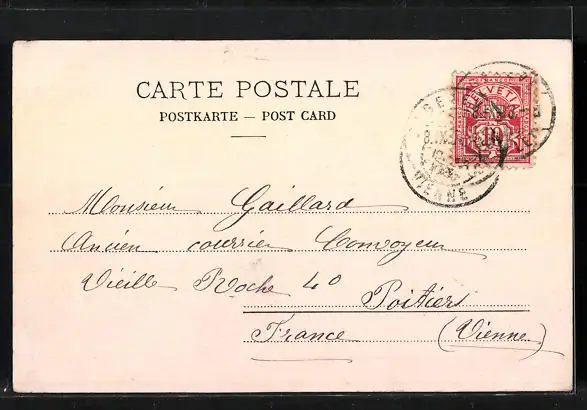 CARTE POSTALE
POSTKARTE — POST CARD
HELVETIA
10
VIENNE
Monsieur Gaillard
Ancien courrier Convoyeur
Vieille Roche 40
Poitiers
France (Vienne)